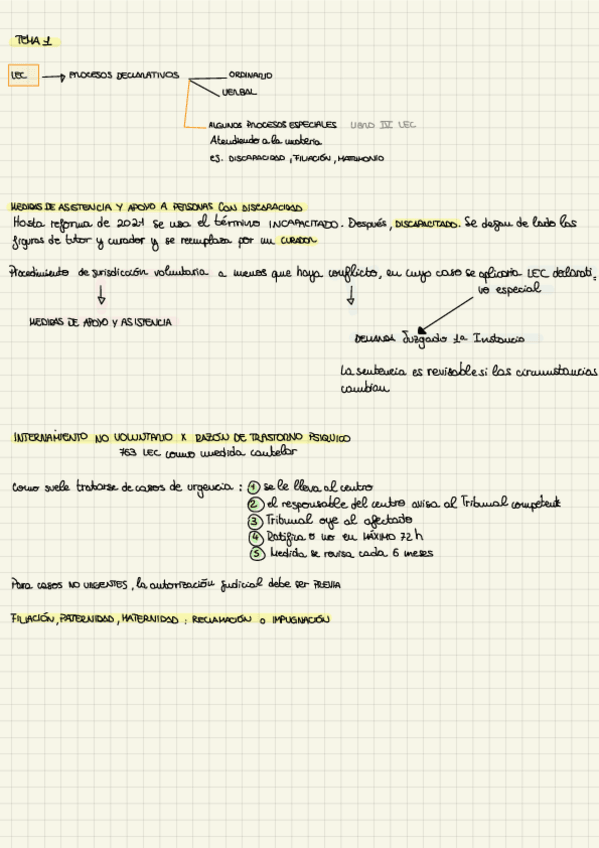 TEMA 1
LEC → PROCESOS DECLARATIVOS ORDINARIO
VERBAL
ALGUNOS PROCESOS ESPECIALES LIBRO IV LEC
Atendiendo a la materia
ej. DISCAPACIDAD, FILIACIÓN, MATRIMONIO
MEDIDAS DE ASISTENCIA Y APOYO A PERSONAS CON DISCAPACIDAD
Hasta reforma de 2021 se usa el término INCAPACITADO. Después, DISCAPACITADO. Se dejan de lado las
figuras de tutor y curador y se reemplaza por un CURADOR
Procedimiento de jurisdicción voluntaria a menos que haya conflicto, en cuyo caso se aplicaría LEC declarati-
vo especial
MEDIDAS DE APOYO Y ASISTENCIA
DEMANDA Juzgado 1ª Instancia
La sentencia es revisable si las circunstancias
cambian
INTERNAMIENTO NO VOLUNTARIO X RAZÓN DE TRASTORNO PSIQUICO
763 LEC como medida cautelar
Como suele tratarse de casos de urgencia : 1 se le lleva al centro
2 el responsable del centro avisa al Tribunal competent
3 Tribunal oye al afectado
4 Ratifica o no en MÁXIMO 72 h
5 Medida se revisa cada 6 meses
Para casos NO URGENTES, la autorización judicial debe ser PREVIA
FILIACIÓN, PATERNIDAD, MATERNIDAD : RECLAMACIÓN o IMPUGNACIÓN